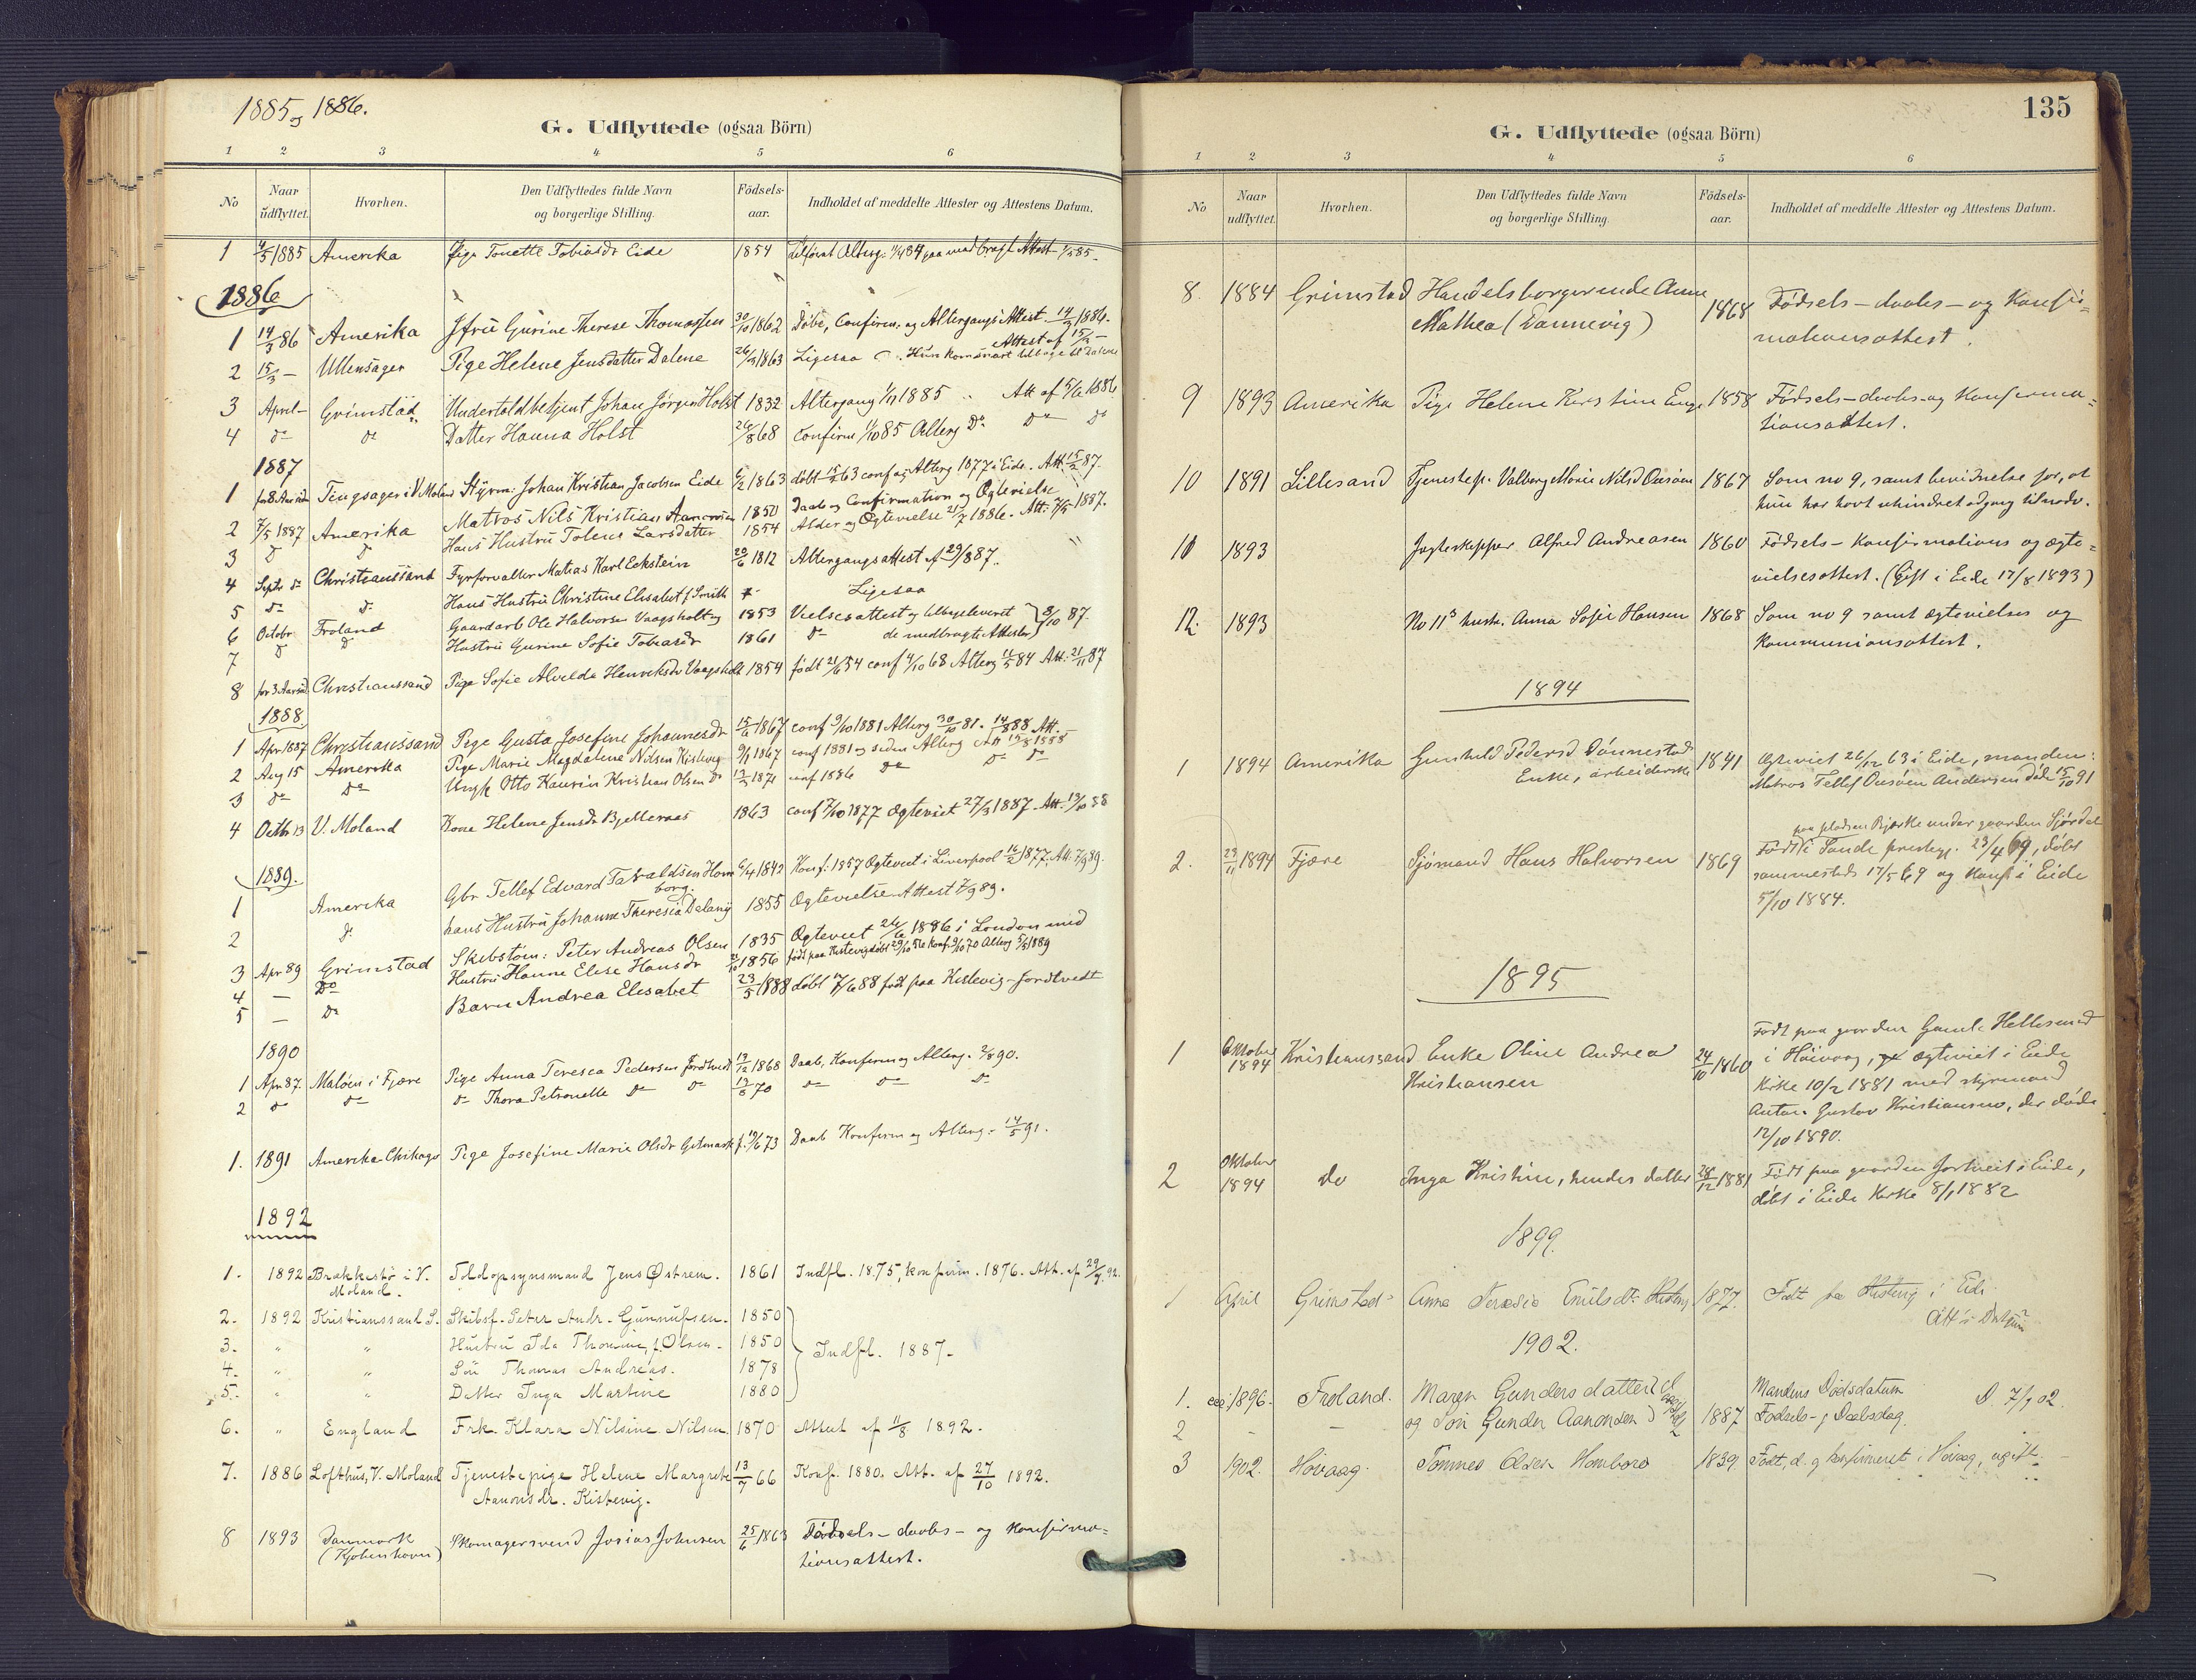 1885 og 1886.
G. Udflyttede (ogsaa Börn)
1 2 3 4 5 6
No Naar udflyttet. Hvorhen. Den Udflyttedes fulde Navn og borgerlige Stilling. Födsels-aar. Indholdet af meddelte Attester og Attestens Datum.
1 4/5 1885 Amerika Pige Tonette Tobiasdr Eide 1854
1886
1 14/3 86 Amerika Jfru Gurine Therese Thomassen 30/10 1862 Döbe, Confirm. og Altergangs Attest 14/3 1886.
2 15/3 — Ullensager Pige Helene Jensdatter Dalene 26/3 1863 Ligesaa Attest af 15/3 —
3 April — Grimstad Undertoldbetjent Johan Jörgen Holst 1832 Altergang 1885 Att af 5/6 1886
4 do do Datter Hanna Holst 26/8 68 Confirm 4/10 85 Alterg Do Do Do
1887
1 for 8 Aar siden Tingsager i V. Moland Styrm: Johan Kristian Jacobsen Eide 6/2 1863 döbt 15/2 63 conf og Alterg 1877 i Eide. Att. 15/2 87.
2 7/5 1887 Amerika Matros Nils Kristian Aanonsen 1850 Daab og Confirmation og Ægtevielse
3 D D Hans Hustru Tolene Larsdatter 1854 Alder og Ægtevielse 21/7 1886. Att: 7/5 1887.
4 Septr do Christianssand Fyrforvalter Matias Karl Eckstein 20/6 1812 Altergangsattest af 29/8 87.
5 do do Hans Hustru Christine Elisabet f. Smith Ligesaa
6 Octobr Froland Gaardarb Ole Halvorsen Vaagsholt og 1853 Vielsesattest og tilbageleveret } 8/10 87
7 D D Hustru Gurine Sofie Tobiasdr 1861 do de medbragte Attester
8 for 3 Aar sid. Christianssand Pige Sofie Alvilde Henriksdr Vaagsholt 1854 födt 21/6 54 conf 4/10 68 Alterg 11/5 84 Att: 21/11 87
1888.
1 Apr 1887 Christianssand Pige Gusta Josefine Johannesdr 15/6 1867 conf 9/10 1881 Alterg 30/10 81. 14/8 88 Att.
2 Aug 15 Amerika Pige Marie Magdalene Nilsen Kistevig 9/1 1867 conf 1881 og siden Alterg Att 14/8 1888
3 do do Ungk Otto Kaurin Kristian Olsen do 13/3 1871 conf 1886 do do do
4 Octbr 13 V. Moland Kone Helene Jensdr Bjelleraas 1863 conf 7/10 1877 Ægteviet 27/3 1887. Att. 13/10 88
1889.
1 Amerika Gbr Tellef Edvard Tarvaldsen Homborg. 6/4 1842 Konf. 1857 Ægteviet i Liverpool 16/2 1877. Att. 7/9 89.
2 do hans Hustru Johanne Theresia Delany 1855 Ægtevielse Attest 7/9 89.
3 Apr 89 Grimstad Skibstöm: Peter Andreas Olsen 1835 Ægteviet 26/6 1886 i London med
4 — Do Hustru Hanne Elise Hansdr 1856 födt paa Kistevig döbt 29/10 56 Konf. 9/10 70 Alterg 5/5 1889
5 — Do Barn Andrea Elisabet 23/5 1888 döbt 17/6 88 födt paa Kistevig-Fordtvedt
1890
1 Apr 87. Malöen i Fjære Pige Anna Teresea Pedersen Fordtvedt 13/12 1868 Daab, Konfirm og Alterg. 2/8 90.
2 do do do Thora Petronelle do do 13/6 70 do do do
1. 1891 Amerika Chikago Pige Josefine Marie Olsdr Gitmark f. 19/6 73 Daab Konfirm og Alterg. 14/5 91.
1892
1. 1892 Brækkestö i V. Moland. Toldopsynsmand Jens Østrem. 1861 Indfl. 1875, konfirm. 1876. Att. af 29/7. 92.
2. 1892 Kristianssand S. Skibsf. Peter Andr. Gunnufsen. 1850
3. " " Hustru Ida Thomine f. Olsen. 1850 } Indfl. 1887.
4. " " Sön Thomas Andreas. 1878
5. " " Datter Inga Martine 1880
6. " England Frk. Klara Nilsine Nilsen 1870 Attest af 11/8 1892.
7. 1886 Lofthus, V. Moland Tjenestepige Helene Margrete 13/7 66 Konf. 1880. Att. af 27/10 1892.
Aanonsdr. Kistevig.
8 1893 Danmark (Kjöbenhavn) Skomagersvend Josias Johnsen 25/6 1863 Födsels-daabs- og Konfirma=
tionsattest.
135
G. Udflyttede (ogsaa Börn)
1 2 3 4 5 6
No Naar udflyttet. Hvorhen. Den Udflyttedes fulde Navn og borgerlige Stilling. Födsels-aar. Indholdet af meddelte Attester og Attestens Datum.
8. 1884 Grimstad Handelsborgerinde Anne 1868 Födsels-daabs- og Konfir=
Mathea (Dannevig) mationsattest.
9 1893 Amerika Pige Helene Kirstine Enge 1858 Födsels-daabs- og Konfirma=
tionsattest.
10 1891 Lillesand Tjenestep. Valborg Marie Nilsd 1867 Som no 9, samt bevidnelse for, at
hun har havt uhindret adgang til nadv.
11 1893 Jagteskipper Alfred Andreasen 1860 Födsels- Konfirmations og ægte=
vielsesattest. (Gift i Eide 17/8 1893)
12. 1893 No 11s hustr. Anna Sofie Hansen 1868 Som no 9 samt ægtevielses og
Kommunionsattest.
1894
1 1894 Amerika Gunhild Pedersd Dönnestad 1841 Ægteviet 26/12 63 i Eide, manden:
Enke, arbeiderske Matros Tellef Andersen död 5/10 91
2. 23/11 1894 Fjære Sjömand Hans Halvorsen 1869 paa pladsen Bjerke under gaarden Sjördal
Födt i Sande prestegj. 23/4 69, döbt
sammesteds 17/5 69 og Konf. i Eide
5/10 1884.
1895
1 Oktober 1894 Kristianssand Enke Oline Andrea 24/10 1860 Födt paa gaarden Gamle Hellesund
Kristiansen i Höivaag, ægteviet i Eide
Kirke 10/2 1881 med styrmand
Anton Gustav Kristiansen, der döde
12/10 1890.
2 Oktober 1894 do Inga Kristine, hendes datter 28/12 1881 Födt paa gaarden Fortveit i Eide,
döbt i Eide Kirke 8/1 1882
1899.
1 April Grimstad Anna Teresie Emilsdr. Kistevig 1877. Födt paa Kistevig i Eide.
1902.
1. 1896. Froland. Maren Gundersdatter Mandens Dödsdatum D. 7/1 02.
2 - - og Sön Gunder Aanonsen 1887 Födsels- og Daabsdag.
3 1902. Hövaag. Tönnes Olsen Homboro 1839 Födt, d. og konfirmeret i Hövaag, ugift.